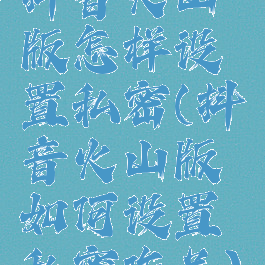 抖音火山
版怎样设
置私密(抖
音火山版
如何设置
私密